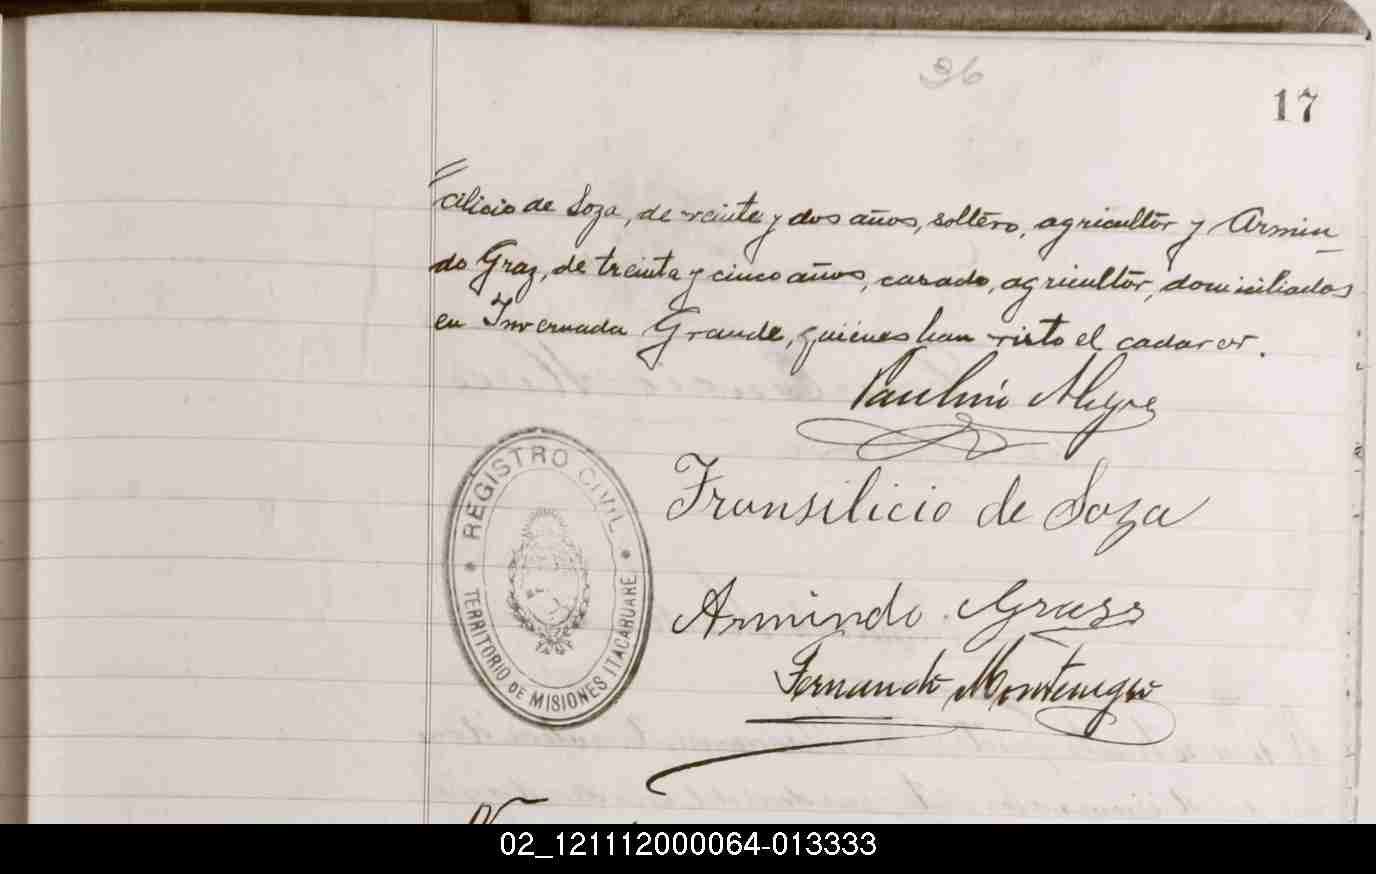 36
17
cilicio de Soza, de veinte y dos años, soltero, agricultor y Armin_
do Graz, de treinta y cinco años, casado, agricultor, domiciliados
en Invernada Grande, quienes han visto el cadaver.
Paulino Alegre
Fransilicio de Soza
REGISTRO CIVIL
TERRITORIO DE MISIONES ITACARUARE
Armindo Grass
Fernando Montenegro
02_121112000064-013333